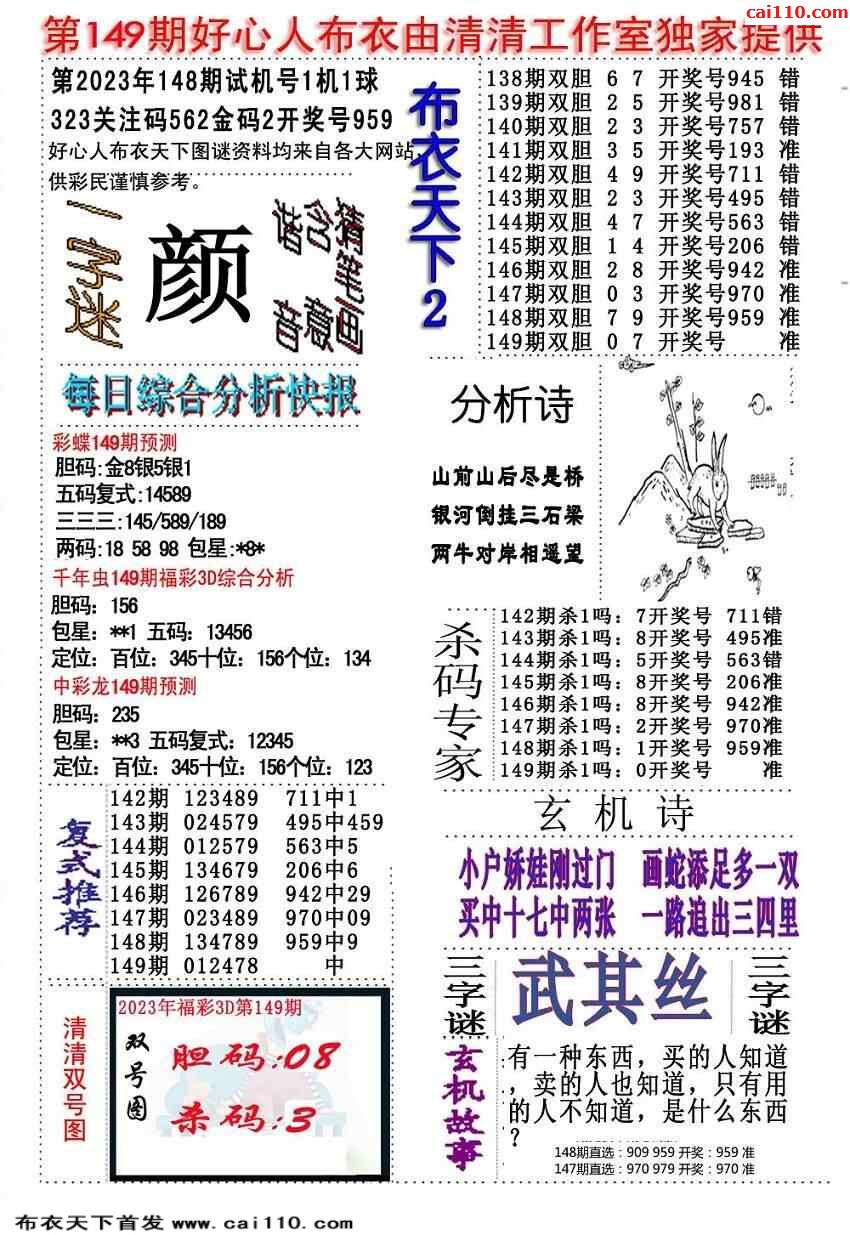 cai110.com
第149期好心人布衣由清清工作室独家提供
第2023年148期试机号1机1球
323关注码562金码2开奖号959
好心人布衣天下图谜资料均来自各大网站,
供彩民谨慎参考。
一字迷
颜
猜笔画
含意
谐音
布衣天下2
138期双胆 6 7 开奖号945 错
139期双胆 2 5 开奖号981 错
140期双胆 2 3 开奖号757 错
141期双胆 3 5 开奖号193 准
142期双胆 4 9 开奖号711 错
143期双胆 2 3 开奖号495 错
144期双胆 4 7 开奖号563 错
145期双胆 1 4 开奖号206 错
146期双胆 2 8 开奖号942 准
147期双胆 0 3 开奖号970 准
148期双胆 7 9 开奖号959 准
149期双胆 0 7 开奖号 准
每日综合分析快报
彩蝶149期预测
胆码:金8银5银1
五码复式:14589
三三三:145/589/189
两码:18 58 98 包星:*8*
千年虫149期福彩3D综合分析
胆码：156
包星：**1 五码：13456
定位：百位：345十位：156个位：134
中彩龙149期预测
胆码：235
包星：**3 五码复式：12345
定位：百位：345十位：156个位：123
分析诗
山前山后尽是桥
银河倒挂三石梁
两牛对岸相遥望
杀码专家
142期杀1吗：7开奖号 711错
143期杀1吗：8开奖号 495准
144期杀1吗：5开奖号 563错
145期杀1吗：8开奖号 206准
146期杀1吗：8开奖号 942准
147期杀1吗：2开奖号 970准
148期杀1吗：1开奖号 959准
149期杀1吗：0开奖号 准
复式推荐
142期 123489 711中1
143期 024579 495中459
144期 012579 563中5
145期 134679 206中6
146期 126789 942中29
147期 023489 970中09
148期 134789 959中9
149期 012478 中
玄机诗
小户娇娃刚过门 画蛇添足多一双
买中十七中两张 一路追出三四里
三字谜
武其丝
三字谜
清清双号图
2023年福彩3D第149期
双号图
胆码:08
杀码:3
玄机故事
有一种东西，买的人知道
，卖的人也知道，只有用
的人不知道，是什么东西
？
148期直选：909 959 开奖：959 准
147期直选：970 979 开奖：970 准
布衣天下首发 www.cai110.com